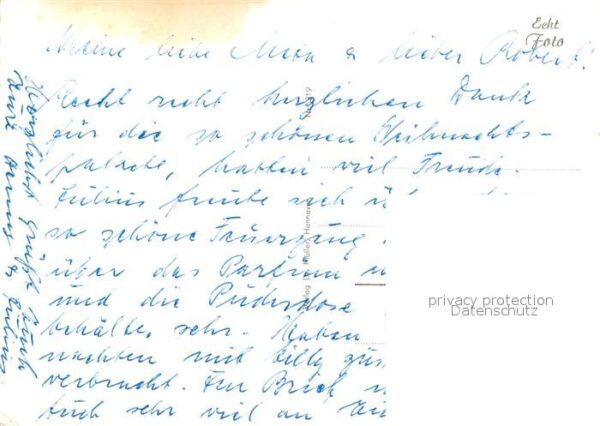 Echt
Foto
Meine liebe Maia & lieber Robert!
Recht recht herzlichen Dank
für die so schönen Weihnachts-
palete, hatten viel Freude.
Julius freute sich ü
so schöne Feuerzeug
über das Parfum u
und die Puderdose
behälte, sehr. Haben
nachten mit Lilly zus
verbracht. Für Brief u
Euch sehr viel an
Herzlichst grüßt Euch
Eure & Julius
Verlag Dr. Müller, Hannover
privacy protection
Datenschutz